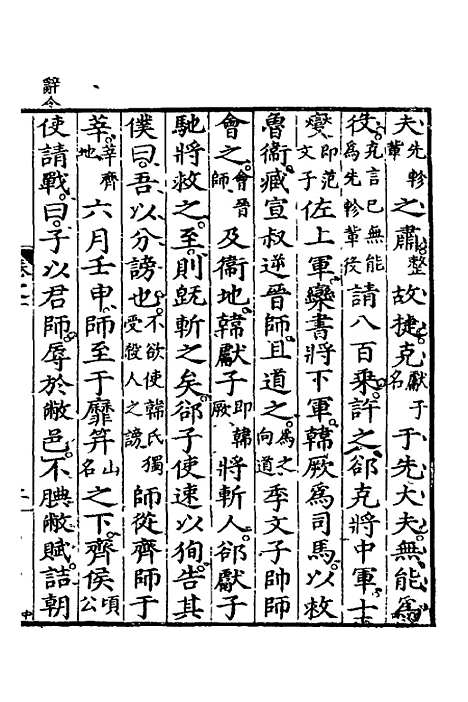 夫先軫輩之肅整故捷克獻子名于先大夫無能爲
役克言己無能爲先軫輩役請八百乘許之郤克將中軍士
燮即范文子佐上軍欒書將下軍韓厥爲司馬以救
魯衞臧宣叔逆晉師且道之爲之向道季文子帥師
會之會晉師及衞地韓獻子即韓厥將斬人郤獻子
馳將救之至則旣斬之矣郤子使速以徇告其
僕曰吾以分謗也不欲使韓氏獨受殺人之謗師從齊師于
莘莘齊地六月壬申師至于靡笄山名之下齊侯頃公
辭令
使請戰曰子以君師辱於敝邑不腆敝賦詰朝